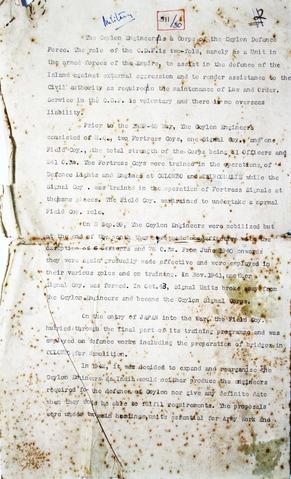 Military
The Ceylon Engineers is a Corps of the Ceylon Defence
Force. The role of the C.D.F. is two-fold, namely as a Unit in
the armed forces of the Empire, to assist in the defence of the
Island against external aggression and to render assistance to the
Civil authority as required in the maintenance of Law and Order.
Service in the C.D.F. is voluntary and there is no overseas
liability.
Prior to the War, The Ceylon Engineers
consisted of H.Q., two Fortress Coys, one Signal Coy, and one
Field Coy., the total strength of the Corps being Officers and
O.Rs. The Fortress Coys were trained in the operations of
Defence Lights and Engines at COLOMBO and TRINCOMALEE while the
Signal Coy. was trained in the operation of Fortress Signals at
these places. The Field Coy. was trained to undertake a normal
Field Coy. role.
On 2 Sep.39, The Ceylon Engineers were mobilized but
at the end of
exception of Officers and O.Rs. From June 1940 onwards
they were again gradually made effective and were employed in
their various roles and on training. In Nov.1941, another
Signal Coy. was formed. In Oct.43, Signal Units broke off from
the Ceylon Engineers and became the Ceylon Signal Corps.
On the entry of JAPAN into the War, the Field Coy.
hurried through the final part of its training programme and was
employed on defence works including the preparation of bridges in
COLOMBO for demolition.
In 1942, it was decided to expand and reorganize the
Ceylon Engineers as India could neither produce the engineers
required for the defence of Ceylon nor give any definite date
when they would be able to fulfil requirements. The proposals
were under various headings, units essential for Army Work and